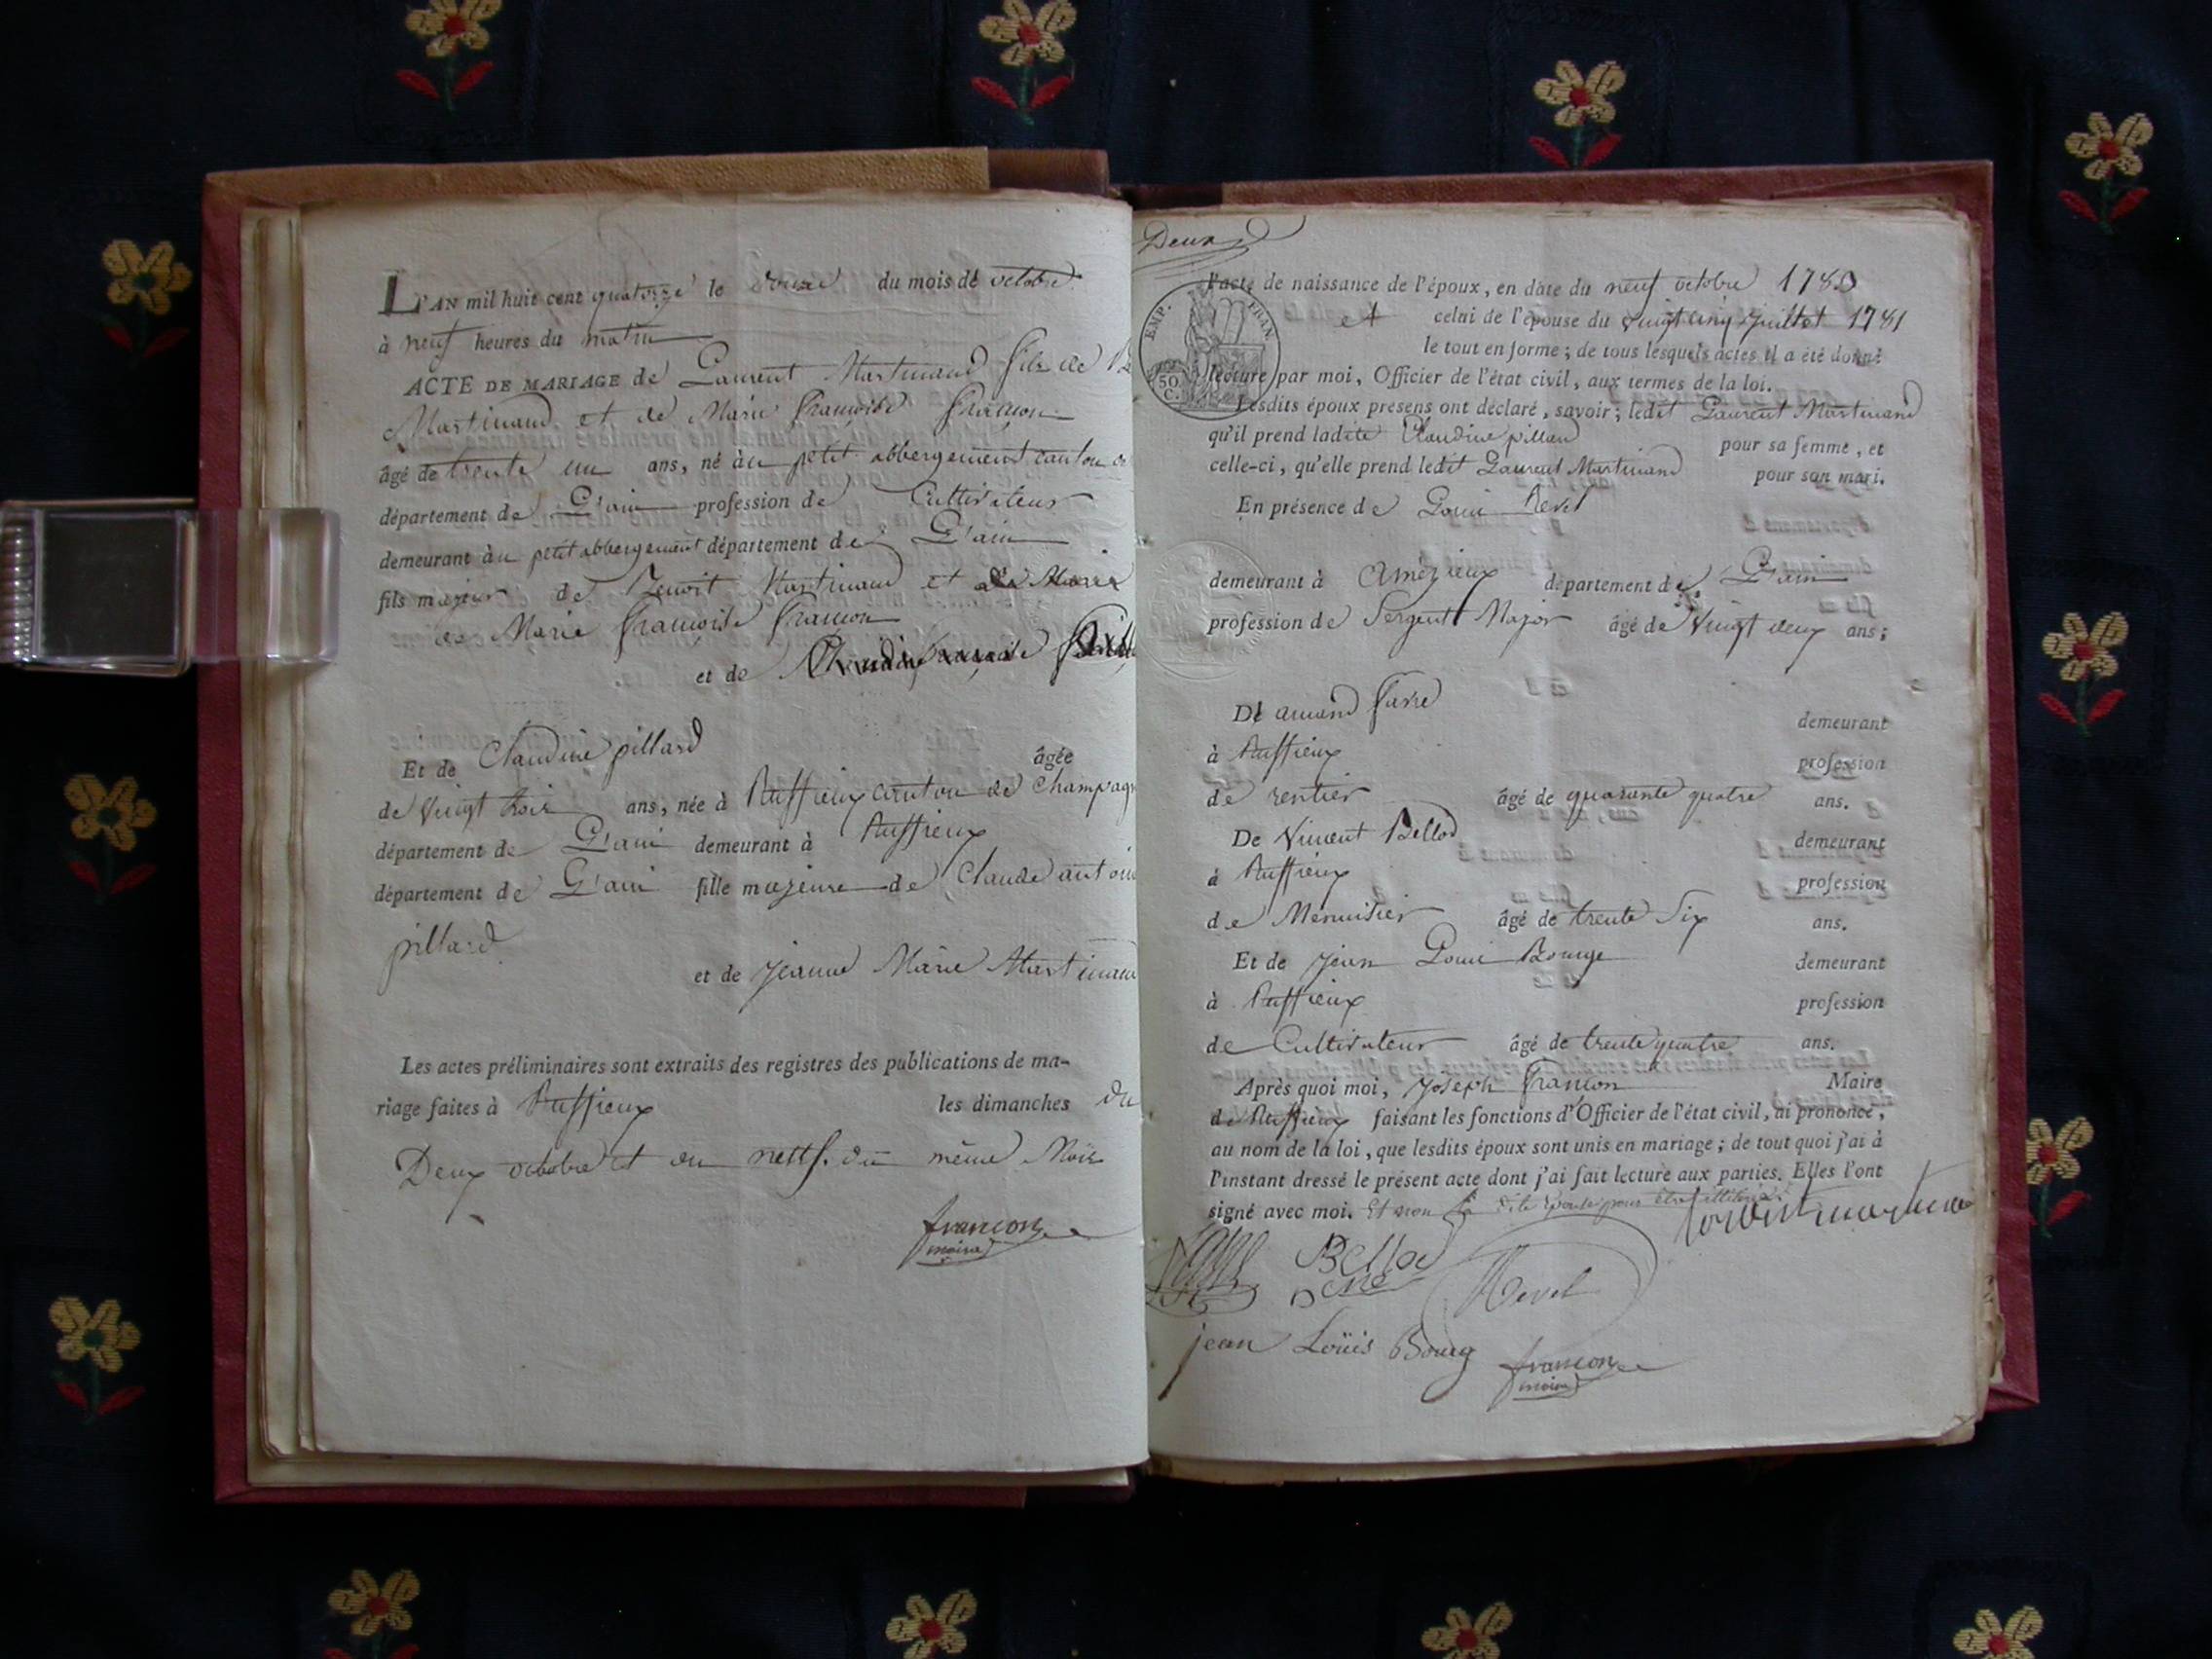 L'AN mil huit cent quatorze le douze du mois de octobre
à neuf heures du matin
ACTE DE MARIAGE de Laurent Martinand fils de
Martinand et de Marie françoise françon
âgé de trente un ans, né àu petit abbergement canton
département de L'ain profession de Cultivateur
demeurant àu petit abbergement département de L'ain
fils majeur de Benoit Martinand et
de Marie françoise françon
et de
Et de Claudine pillard âgée
de vingt trois ans, née à Ruffieux canton de Champag
département de L'ain demeurant à Ruffieux
département de L'ain fille majeure de Claude antoin
pillard
et de jeanne Marie Martinan
Les actes préliminaires sont extraits des registres des publications de ma-
riage faites à Ruffieux les dimanches du
Deux octobre et du neuf du même Mois
françon
maire
Deux
l'acte de naissance de l'époux, en date du neuf octobre 1780
et celui de l'épouse du vingt cinq juillet 1781
le tout en forme; de tous lesquels actes il a été donné
lecture par moi, Officier de l'état civil, aux termes de la loi.
EMP. FRAN.
50.
C.
Lesdits époux présens ont déclaré, savoir; ledit Laurent Martinand
qu'il prend ladite Claudine pillard pour sa femme, et
celle-ci, qu'elle prend ledit Laurent Martinand pour son mari.
En présence de Louis Revel
demeurant à Amézieux département de L'ain
profession de Sergent Major âgé de vingt deux ans;
De amand favre demeurant
à Ruffieux profession
de rentier âgé de quarante quatre ans.
De Vincent Bellod demeurant
à Ruffieux profession
de Menuisier âgé de trente Six ans.
Et de jean Louis Bourge demeurant
à Ruffieux profession
de Cultivateur âgé de trente quatre ans.
Après quoi moi, joseph françon Maire
de Ruffieux faisant les fonctions d'Officier de l'état civil, ai prononcé,
au nom de la loi, que lesdits époux sont unis en mariage; de tout quoi j'ai à
l'instant dressé le présent acte dont j'ai fait lecture aux parties. Elles l'ont
signé avec moi. Et non la dite épouse pour être illitérée
Revel
jean Loüis Bourg françon
maire